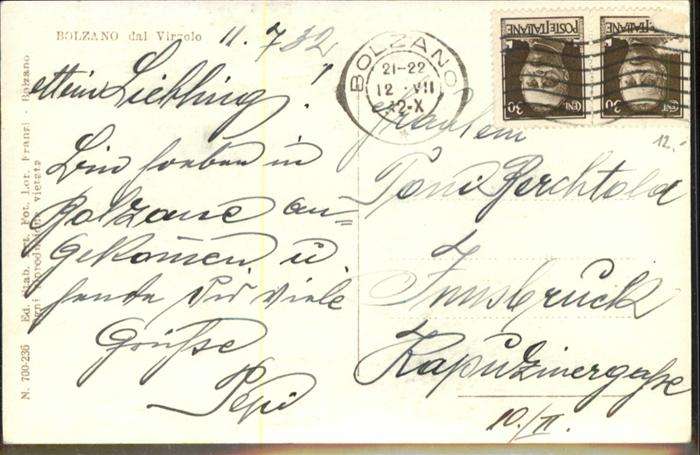 BOLZANO dal Virgolo
11.7.32
Mein Liebling!
Bin soeben in
Bolzano an=
gekommen u
sende Dir viele
Grüsse
Pepi
BOLZANO
21-22
12 · VII
32-X
POSTE ITALIANE
CENT. 30
POSTE ITALIANE
CENT. 30
12.-
Fräulein
Toni Berchtold
Innsbruck
Kapuzinergasse
10./II.
N. 700-236 Ed. Stab. Art. Fot. Lor. Fränzl - Bolzano
Ogni riproduzione vietata